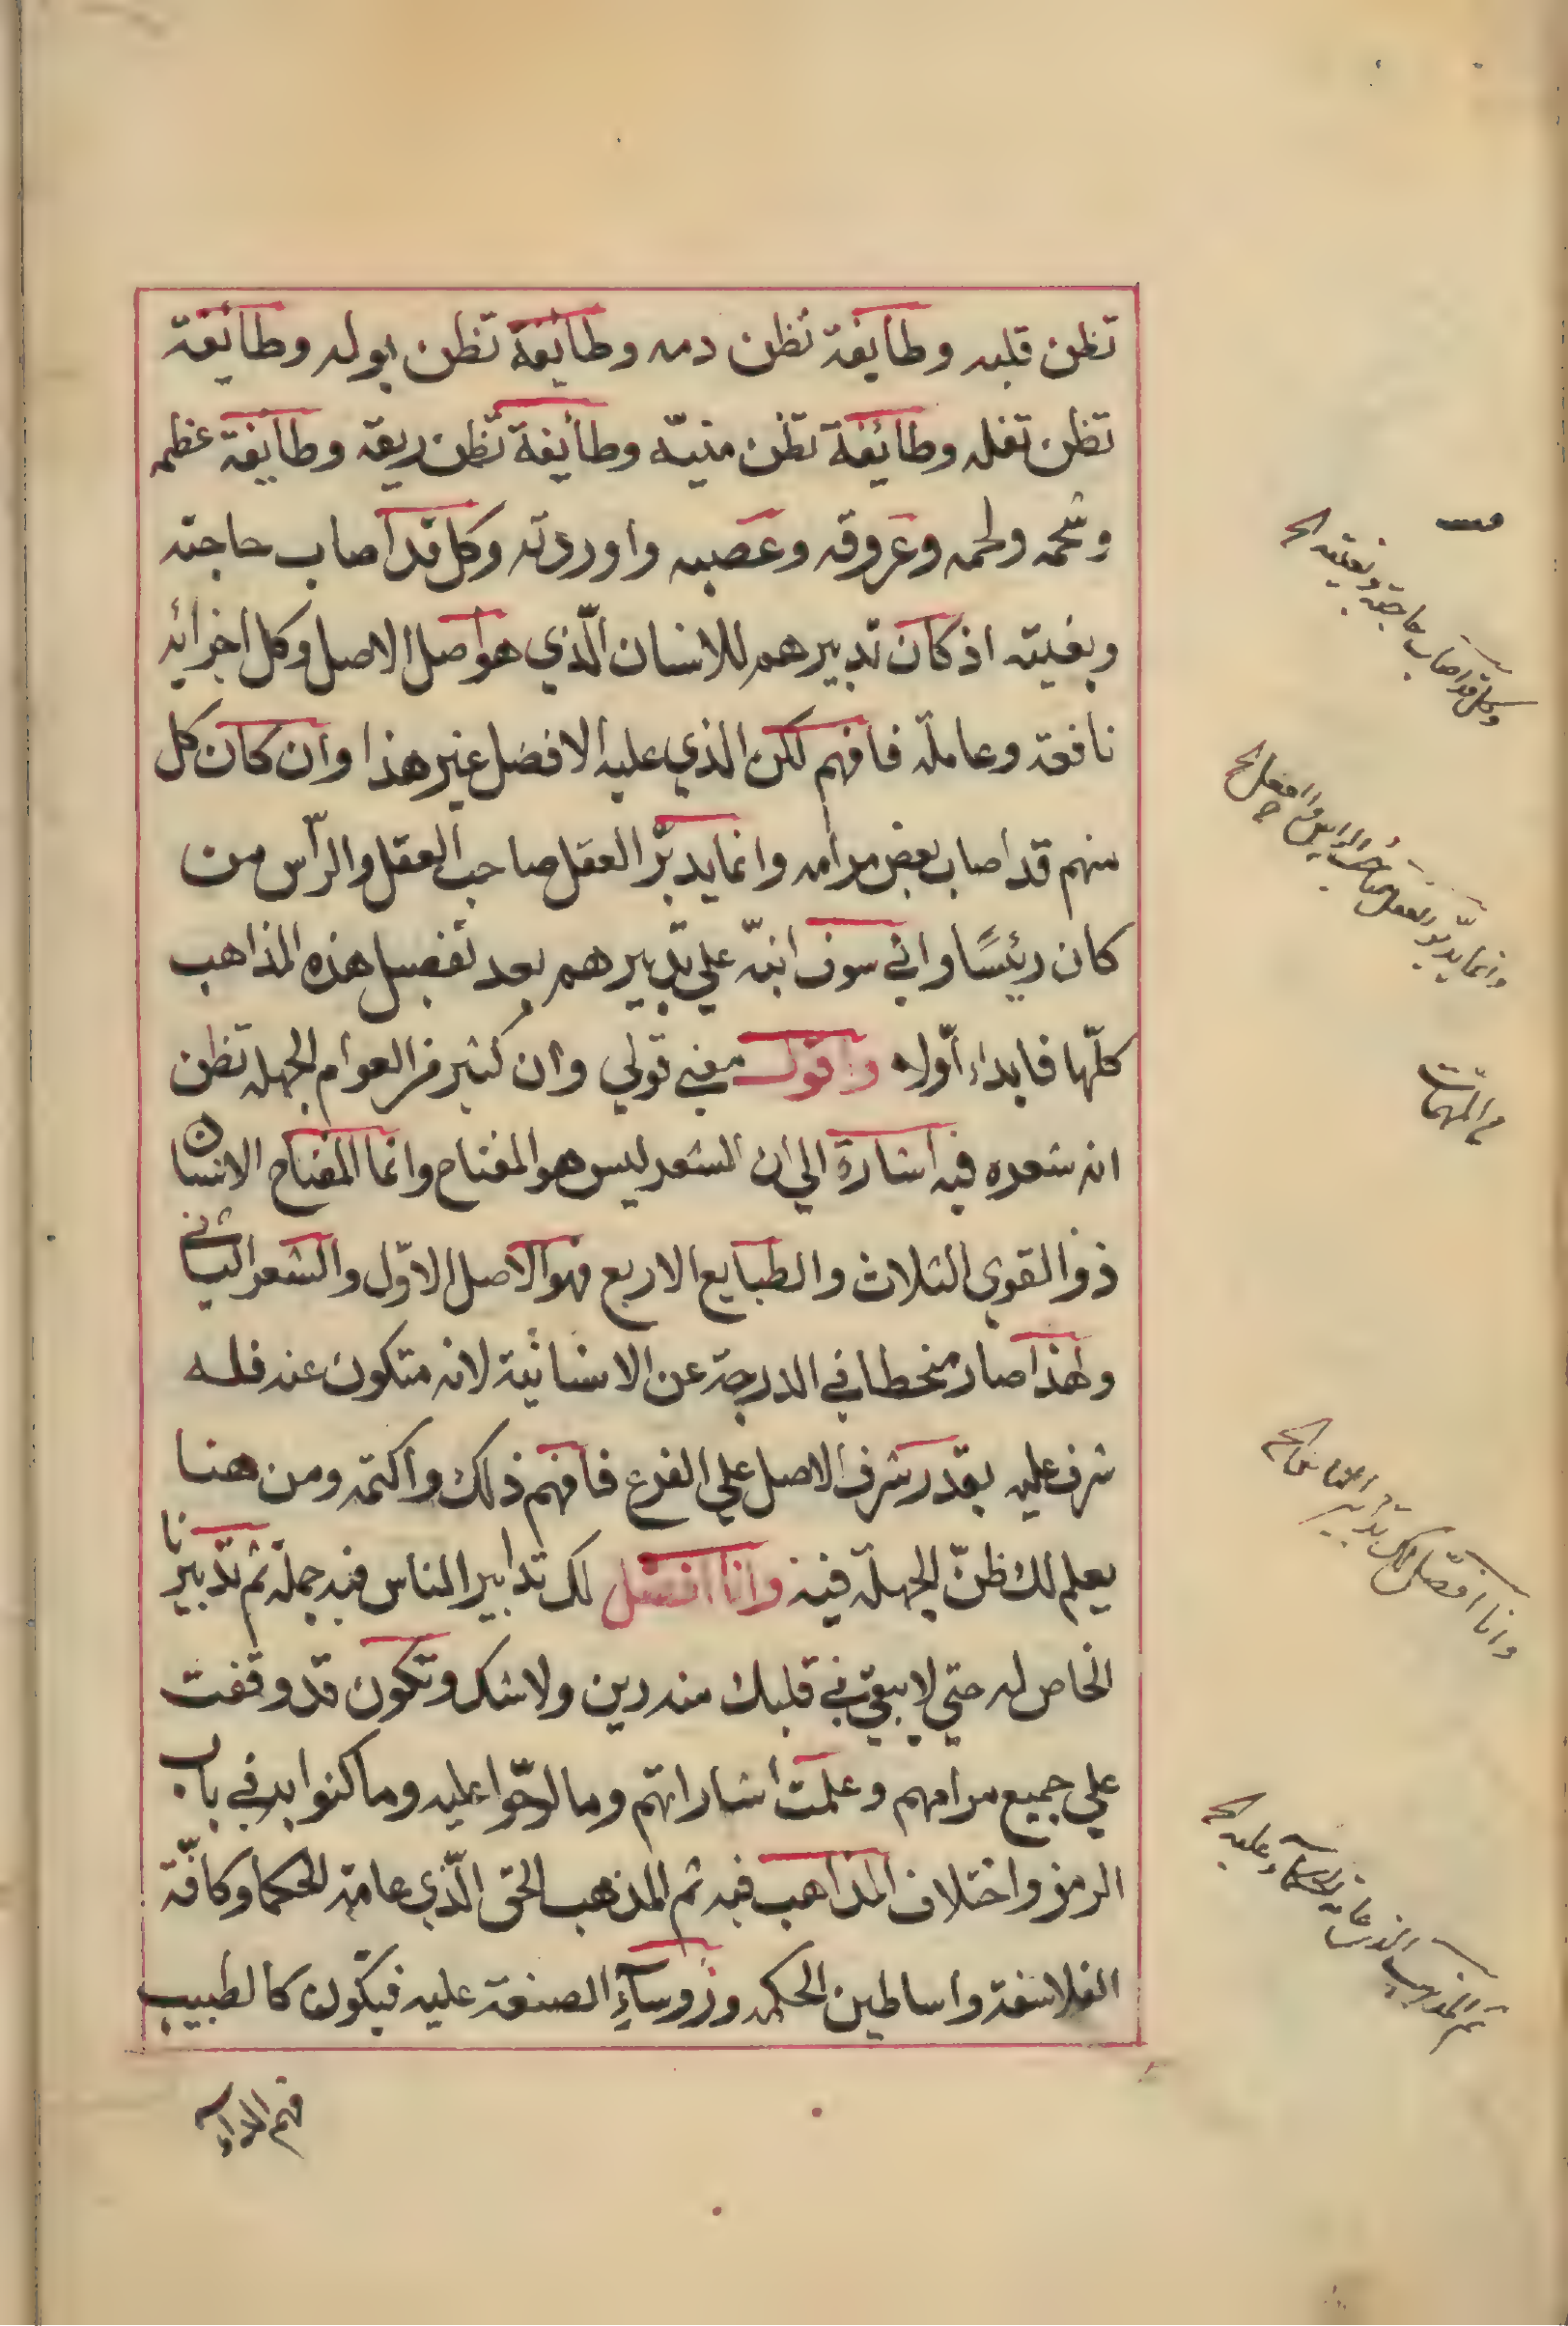 تظن قلبه وطايفة تظن دمه وطائفة تظن بوله وطائفة
تظن تفله وطائفة تظن منيّه وطائفة تظن ريقه وطايفة عظمه
وشحمه ولحمه وعروقه وعصبه واوردته وكل قد اصاب حاجته
وبغيته اذ كان تدبيرهم للانسان الّذي هو اصل الاصل وكل اجزائه
نافعة وعاملة فافهم لكن الذي عليه الافضل غير هذا وان كان كل
منهم قد اصاب بعض مرامه وانما يدبّر العقل صاحب العقل والرّاس من
كان رئيسًا واني سوف انبّه علي تدبيرهم بعد تفصيل هذه المذاهب
كلّها فابداء اوّلا واقول معني قولي وان كثير من العوام الجهله تظن
انه شعره فيه اشارة الي ان الشعر ليس هو المفتاح وانما المفتاح الانسان
ذو القوي الثلاث والطبايع الاربع فهو الاصل الاوّل والشعر الثاني
ولهذا صار منحطا في الدرجة عن الانسانية لانه متكون عنه فله
شرف عليه بقدر شرف الاصل علي الفرع فافهم ذلك واكتمه ومن هنا
يعلم لك ظنّ الجهلة فيه وانا افضل لك تدابير الناس فيه جملة ثم تدبيرنا
الخاص له حتي لا يبقي في قلبك منه رين ولا شك وتكون قد وقفت
علي جميع مرامهم وعلمت اشاراتهم وما لوحّوا عليه وما كنوا به في باب
الرمز واختلاف المذاهب فيه ثم المذهب الحق الّذي عامة الحكما وكافّة
الفلاسفة واساطين الحكمه ورؤسآءِ الصنعة عليه فيكون كالطبيب
فهم الدآء
وكل قد اصاب حاجته وبغيته الخ
وانما يدبّر العقل صاحب الراس والعقل الخ
م المهمّات
وانا افصّل لك تدابير الناس الخ
ثم المذهب الذي عامة الحكمآء عليه الخ